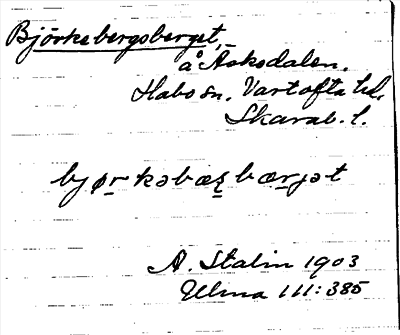 Björkebergsberget,
å Åsksdalen.
Habo sn. Vartofta hd.
Skarab. l.
bjørkəbæʂbærjət
A. Stalin 1903
Ulma 111:385